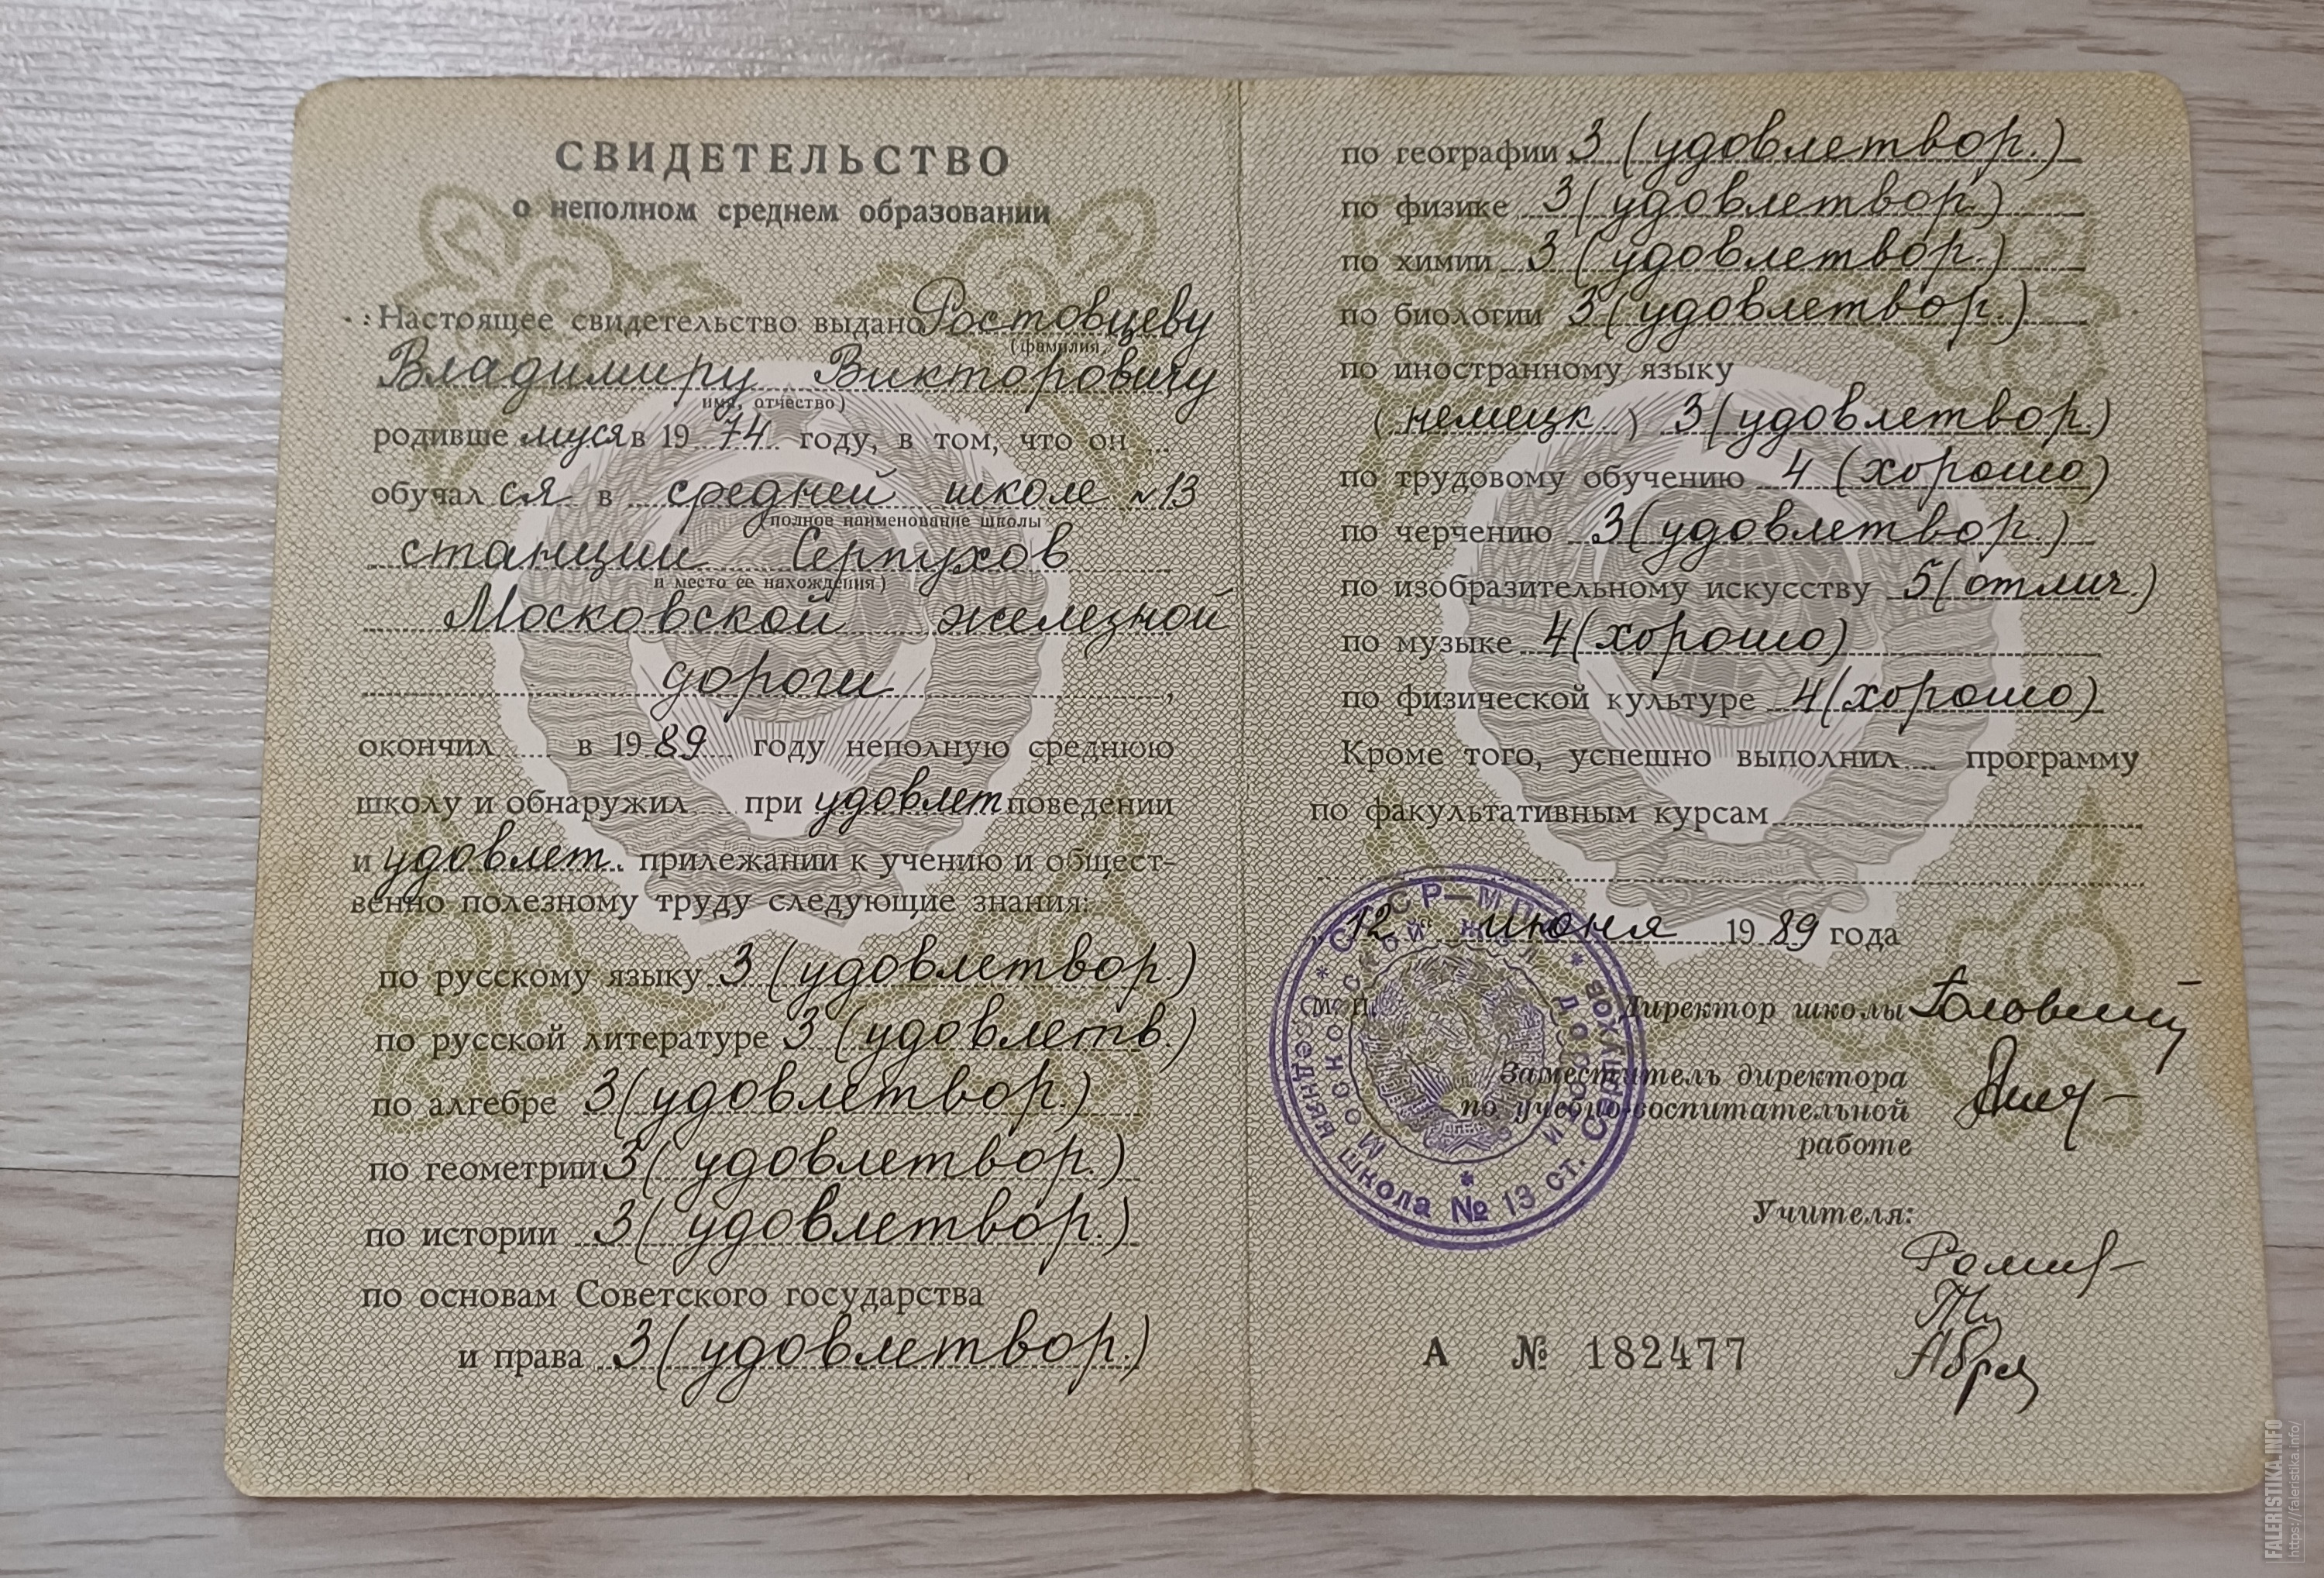 СВИДЕТЕЛЬСТВО
о неполном среднем образовании
Настоящее свидетельство выдано Ростовцеву
(фамилия,
Владимиру Викторовичу
имя, отчество)
родивше муся в 19 74 году, в том, что он
обучал ся в средней школе №13
(полное наименование школы
станции Серпухов
и место ее нахождения)
Московской железной
дороги ,
окончил в 19 89 году неполную среднюю
школу и обнаружил при удовлет поведении
и удовлет. прилежании к учению и общест-
венно полезному труду следующие знания:
по русскому языку 3 (удовлетвор.)
по русской литературе 3 (удовлетв.)
по алгебре 3 (удовлетвор.)
по геометрии 3 (удовлетвор.)
по истории 3 (удовлетвор.)
по основам Советского государства
и права 3 (удовлетвор.)
по географии 3 (удовлетвор.)
по физике 3 (удовлетвор.)
по химии 3 (удовлетвор.)
по биологии 3 (удовлетвор.)
по иностранному языку
(немецк) 3 (удовлетвор.)
по трудовому обучению 4 (хорошо)
по черчению 3 (удовлетвор.)
по изобразительному искусству 5 (отлич.)
по музыке 4 (хорошо)
по физической культуре 4 (хорошо)
Кроме того, успешно выполнил программу
по факультативным курсам
12 июня 19 89 года
М. П.
Директор школы
Заместитель директора
по учебно-воспитательной
работе
Учителя:
А № 182477
средняя школа № 13 ст. Серпухов
Московской дороги
FALERISTIKA.INFO
https://faleristika.info/